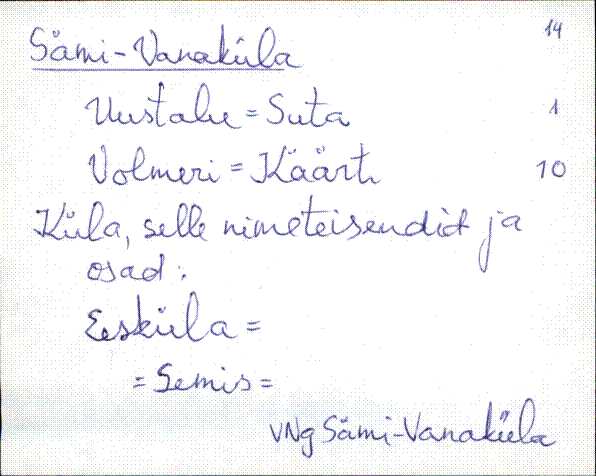 14
Sämi-Vanaküla
Uustalu = Suta 1
Volmeri = Käärt 10
Küla, selle nimeteisendid ja
osad:
Eesküla =
= Semis =
VNg Sämi-Vanaküla